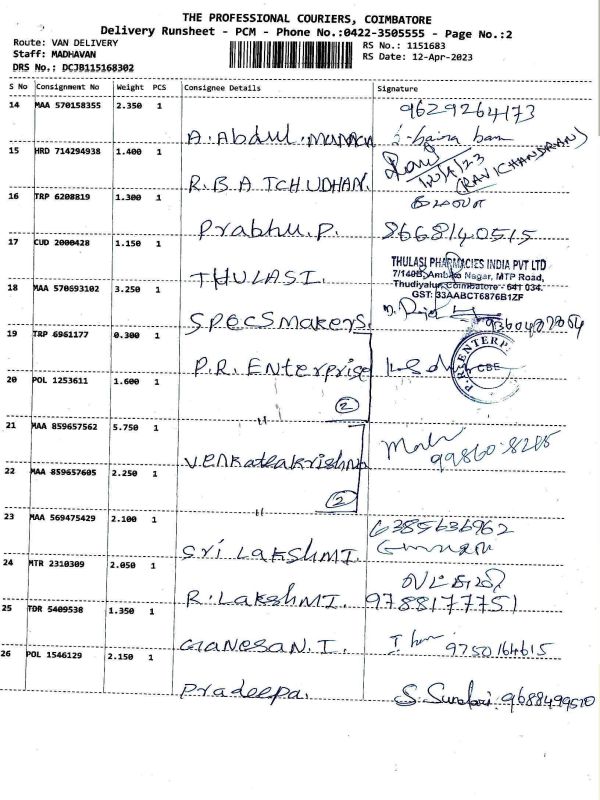 THE PROFESSIONAL COURIERS, COIMBATORE
Delivery Runsheet - PCM - Phone No.:0422-3505555 - Page No.:2
Route: VAN DELIVERY
RS No.: 1151683
Staff: MADHAVAN
RS Date: 12-Apr-2023
DRS No.: DCJB115168302
S No Consignment No Weight PCS Consignee Details Signature
14 MAA 570158355 2.350 1
9629264173
A. Abdul
15 HRD 714294938 1.400 1
12/4/23
(RAVICHANDRAN)
R.B.A TCHUDHAN.
16 TRP 6208819 1.300 1
Prabhu.P. 8668140515
17 CUD 2000428 1.150 1
THULASI PHARMACIES INDIA PVT LTD
7/140B, Ambika Nagar, MTP Road,
Thudiyalur, Coimbatore - 641 034.
GST: 33AABCT6876B1ZF
THULASI.
18 MAA 570693102 3.250 1
SPECSmakers.
19 TRP 6961177 0.300 1
P.R. Enterprise
P.R. ENTERP
CBE
20 POL 1253611 1.600 1
2
21 MAA 859657562 5.750 1
"
Venkatakrishna
22 MAA 859657605 2.250 1
2
23 MAA 569475429 2.100 1
"
6385636962
Sri LAKSHMI.
24 MTR 2310309 2.050 1
R. LAKSHMI. 9788177751
25 TDR 5409538 1.350 1
GANESAN.T. 9750164615
26 POL 1546129 2.150 1
Pradeepa. 9688499510